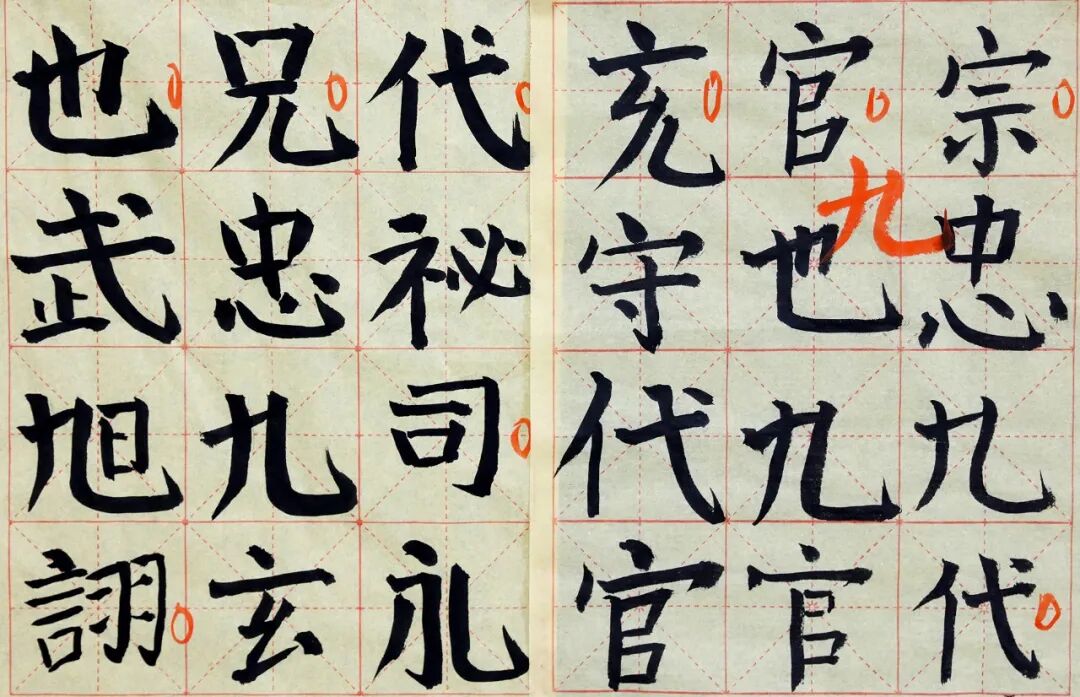 宗忠九代
官也九官
九
充守代官
代祕司永
兄忠九玄
也武旭詡